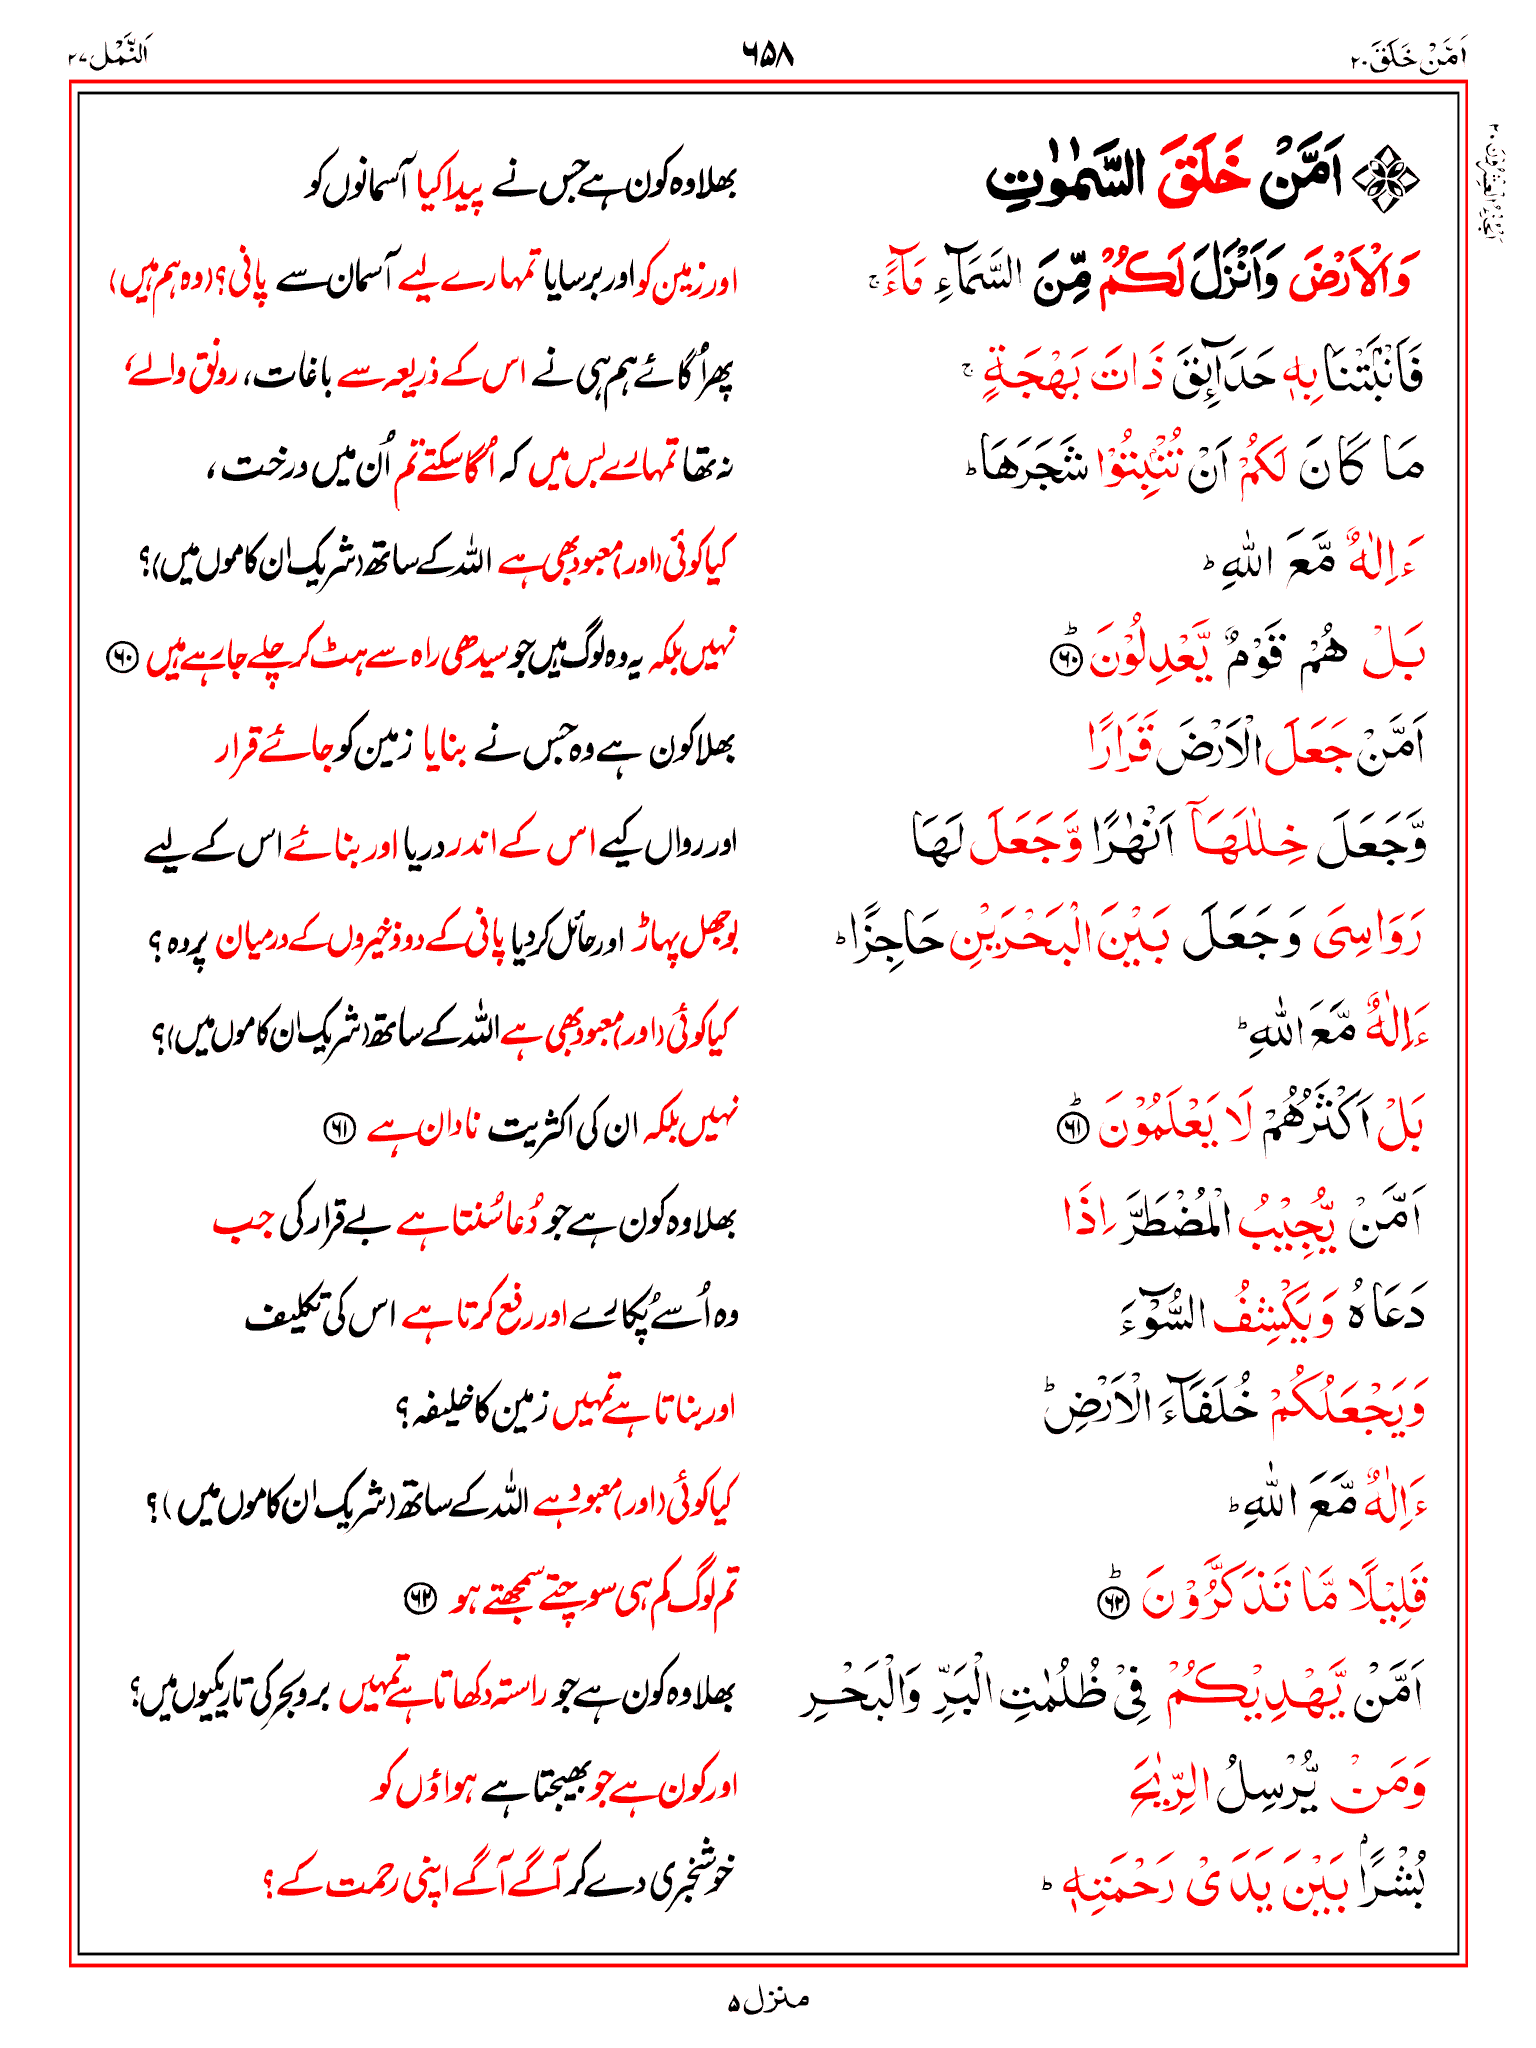 اَمَّنْ خَلَقَ ۲۰
۶۵۸
اَلنَّمْل ۲۷
اَلْجُزْءُ الْعِشْرُوْنَ ۲۰
اَمَّنْ خَلَقَ السَّمٰوٰتِ بھلا وہ کون ہے جس نے پیدا کیا آسمانوں کو
وَالْاَرْضَ وَاَنْزَلَ لَكُمْ مِّنَ السَّمَآءِ مَآءً ۚ اور زمین کو اور برسایا تمہارے لیے آسمان سے پانی؟ (وہ ہم ہیں)
فَاَنْۢبَتْنَا بِهٖ حَدَآئِقَ ذَاتَ بَهْجَةٍ ۚ پھر اُگائے ہم ہی نے اس کے ذریعہ سے باغات، رونق والے،
مَا كَانَ لَكُمْ اَنْ تُنْۢبِتُوْا شَجَرَهَا ؕ نہ تھا تمہارے بس میں کہ اُگا سکتے تم اُن میں درخت،
ءَاِلٰهٌ مَّعَ اللّٰهِ ؕ کیا کوئی (اور) معبود بھی ہے اللہ کے ساتھ (شریک ان کاموں میں)؟
بَلْ هُمْ قَوْمٌ يَّعْدِلُوْنَ ؕ ۶۰ نہیں بلکہ یہ وہ لوگ ہیں جو سیدھی راہ سے ہٹ کر چلے جا رہے ہیں ۶۰
اَمَّنْ جَعَلَ الْاَرْضَ قَرَارًا بھلا کون ہے وہ جس نے بنایا زمین کو جائے قرار
وَّجَعَلَ خِلٰلَهَاۤ اَنْهٰرًا وَّجَعَلَ لَهَا اور رواں کیے اس کے اندر دریا اور بنائے اس کے لیے
رَوَاسِیَ وَجَعَلَ بَيْنَ الْبَحْرَيْنِ حَاجِزًا ؕ بوجھل پہاڑ اور حائل کر دیا پانی کے دو ذخیروں کے درمیان پردہ؟
ءَاِلٰهٌ مَّعَ اللّٰهِ ؕ کیا کوئی (اور) معبود بھی ہے اللہ کے ساتھ (شریک ان کاموں میں)؟
بَلْ اَكْثَرُهُمْ لَا يَعْلَمُوْنَ ؕ ۶۱ نہیں بلکہ ان کی اکثریت نادان ہے ۶۱
اَمَّنْ يُّجِيْبُ الْمُضْطَرَّ اِذَا بھلا وہ کون ہے جو دُعا سُنتا ہے بے قرار کی جب
دَعَاهُ وَيَكْشِفُ السُّوْٓءَ وہ اُسے پُکارے اور رفع کرتا ہے اس کی تکلیف
وَيَجْعَلُكُمْ خُلَفَآءَ الْاَرْضِ ؕ اور بناتا ہے تمہیں زمین کا خلیفہ؟
ءَاِلٰهٌ مَّعَ اللّٰهِ ؕ کیا کوئی (اور) معبود ہے اللہ کے ساتھ (شریک ان کاموں میں)؟
قَلِيْلًا مَّا تَذَكَّرُوْنَ ؕ ۶۲ تم لوگ کم ہی سوچتے سمجھتے ہو ۶۲
اَمَّنْ يَّهْدِيْكُمْ فِیْ ظُلُمٰتِ الْبَرِّ وَالْبَحْرِ بھلا وہ کون ہے جو راستہ دکھاتا ہے تمہیں بر و بحر کی تاریکیوں میں؟
وَمَنْ يُّرْسِلُ الرِّيٰحَ اور کون ہے جو بھیجتا ہے ہواؤں کو
بُشْرًاۢ بَيْنَ يَدَیْ رَحْمَتِهٖ ؕ خوشخبری دے کر آگے آگے اپنی رحمت کے؟
منزل ۵